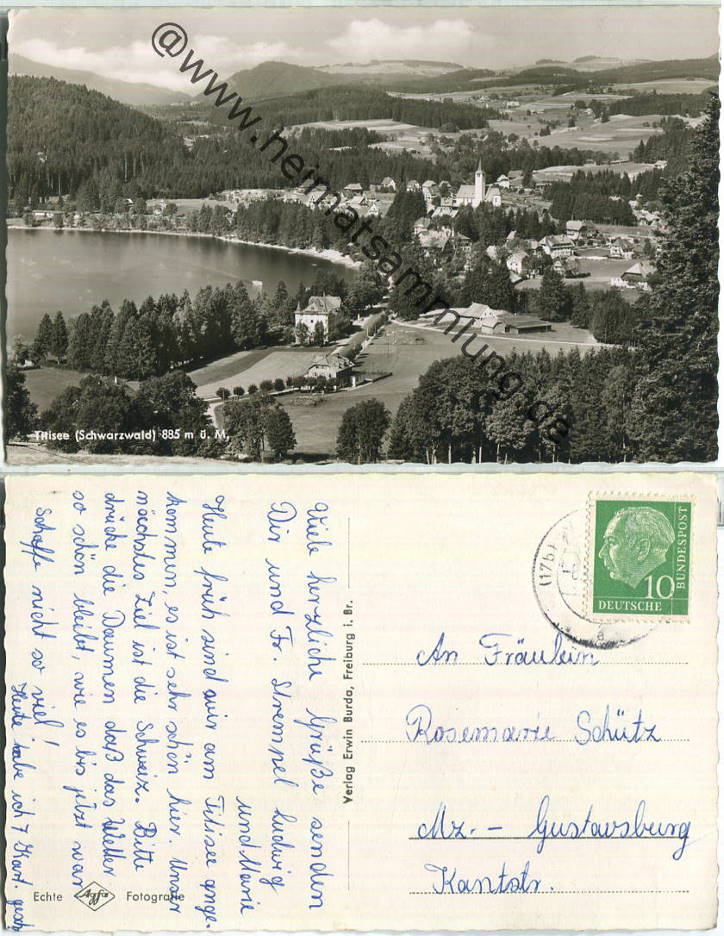 @www.heimatsammlung.de
Titisee (Schwarzwald) 885 m ü. M.
Viele herzliche Grüße senden
Dir und Fr. Strempel Ludwig
und Marie
Heute früh sind wir am Titisee ange-
kommen, es ist sehr schön hier. Unser
nächstes Ziel ist die Schweiz. Bitte
drücke die Daumen daß das Wetter
so schön bleibt, wie es bis jetzt war
Schaffe nicht so viel!
Heute habe ich 7 Kart. gesch
Echte Agfa Fotografie
Verlag Erwin Burda, Freiburg i. Br.
(17b)
10
DEUTSCHE
BUNDESPOST
An Fräulein
Rosemarie Schütz
Mz.-- Gustavsburg
Kantstr.